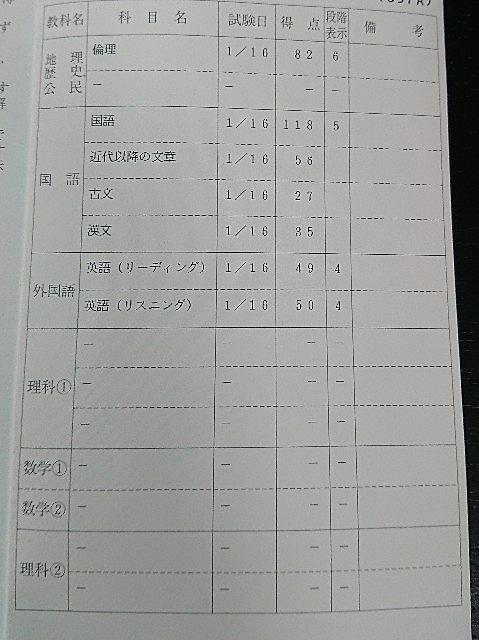 教科名 科目名 試験日 得点 段階表示 備考
地理歴史、公民 倫理 1/16 82 6
－ － － －
国語 国語 1/16 118 5
近代以降の文章 1/16 56
古文 1/16 27
漢文 1/16 35
外国語 英語（リーディング） 1/16 49 4
英語（リスニング） 1/16 50 4
理科① － － － －
－ － － －
－ － － －
数学① － － － －
数学② － － － －
理科② － － － －
－ － － －